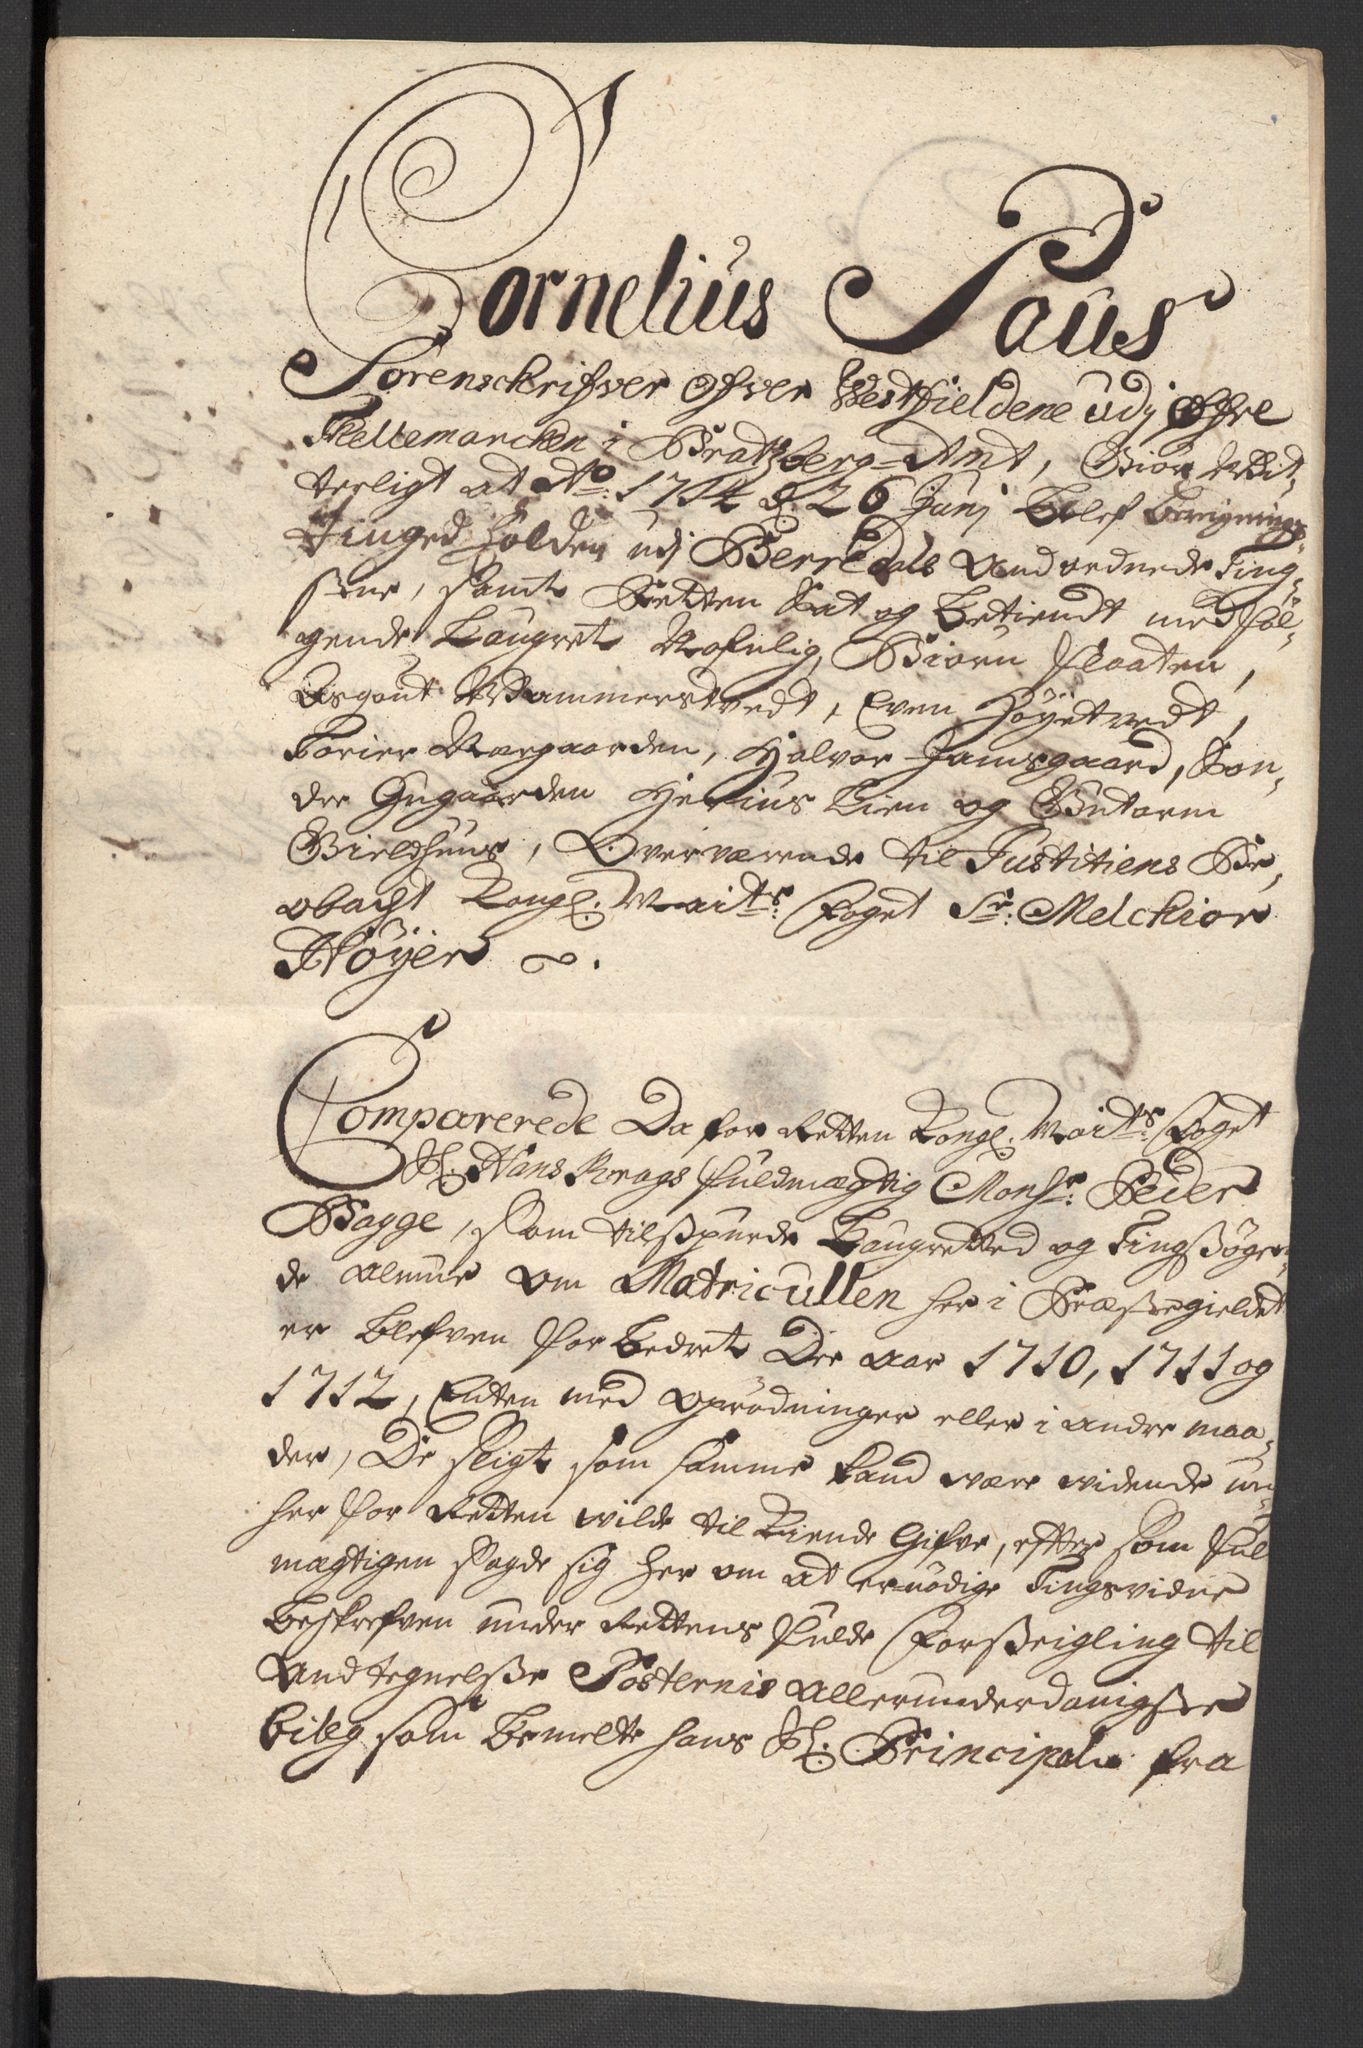 Cornelius Paus
Sorenschrifver Ofver Westfieldene udj Øfre
Tellemarcken i Bratzberg-Amt, Giør Vit-
terligt at Ao: 1714 d. 26 Junj blef
Tinged holden udj Berredals Andordnede Ting-
stue, samt Retten Sat og betiendt med føl-
gende Laugret Nafnlig, Biørn Flaaten,
Asgout Wammerstvedt, Even Høyetvedt,
Torier Nærgaarden, Halvor Jamsgaard, Son-
dre Hierius Lien og Gutorm
Gieldhuus, Overværende til Justitiens Be-
obacht Kongl. Maits: Foget Sr: Melchior
Høyer.
Comparerede Da for Retten Kongl. Maits: Foget
Sl: Hans Krags fuldmægtig Monsr: Peder
Bagge, som tilspurde Laugretted og Tingsøgen-
de Almue Om Matricullen her i Præstegieldet
er blefven forbedret De Aar 1710, 1711 og
1712, Enten med oprødninger eller i andre maa-
der, De sligt som samme kand være vidende
her for Retten wilde til kiende Gifve, efter som ful
mægtigen sagde sig her om at ernødige Tingsvidne
beskrefven under Rettens fulde Forseigling til
Andtegnelse Posternis allerunderdanigste
bileg som bemelte hans Sl: Principal fra